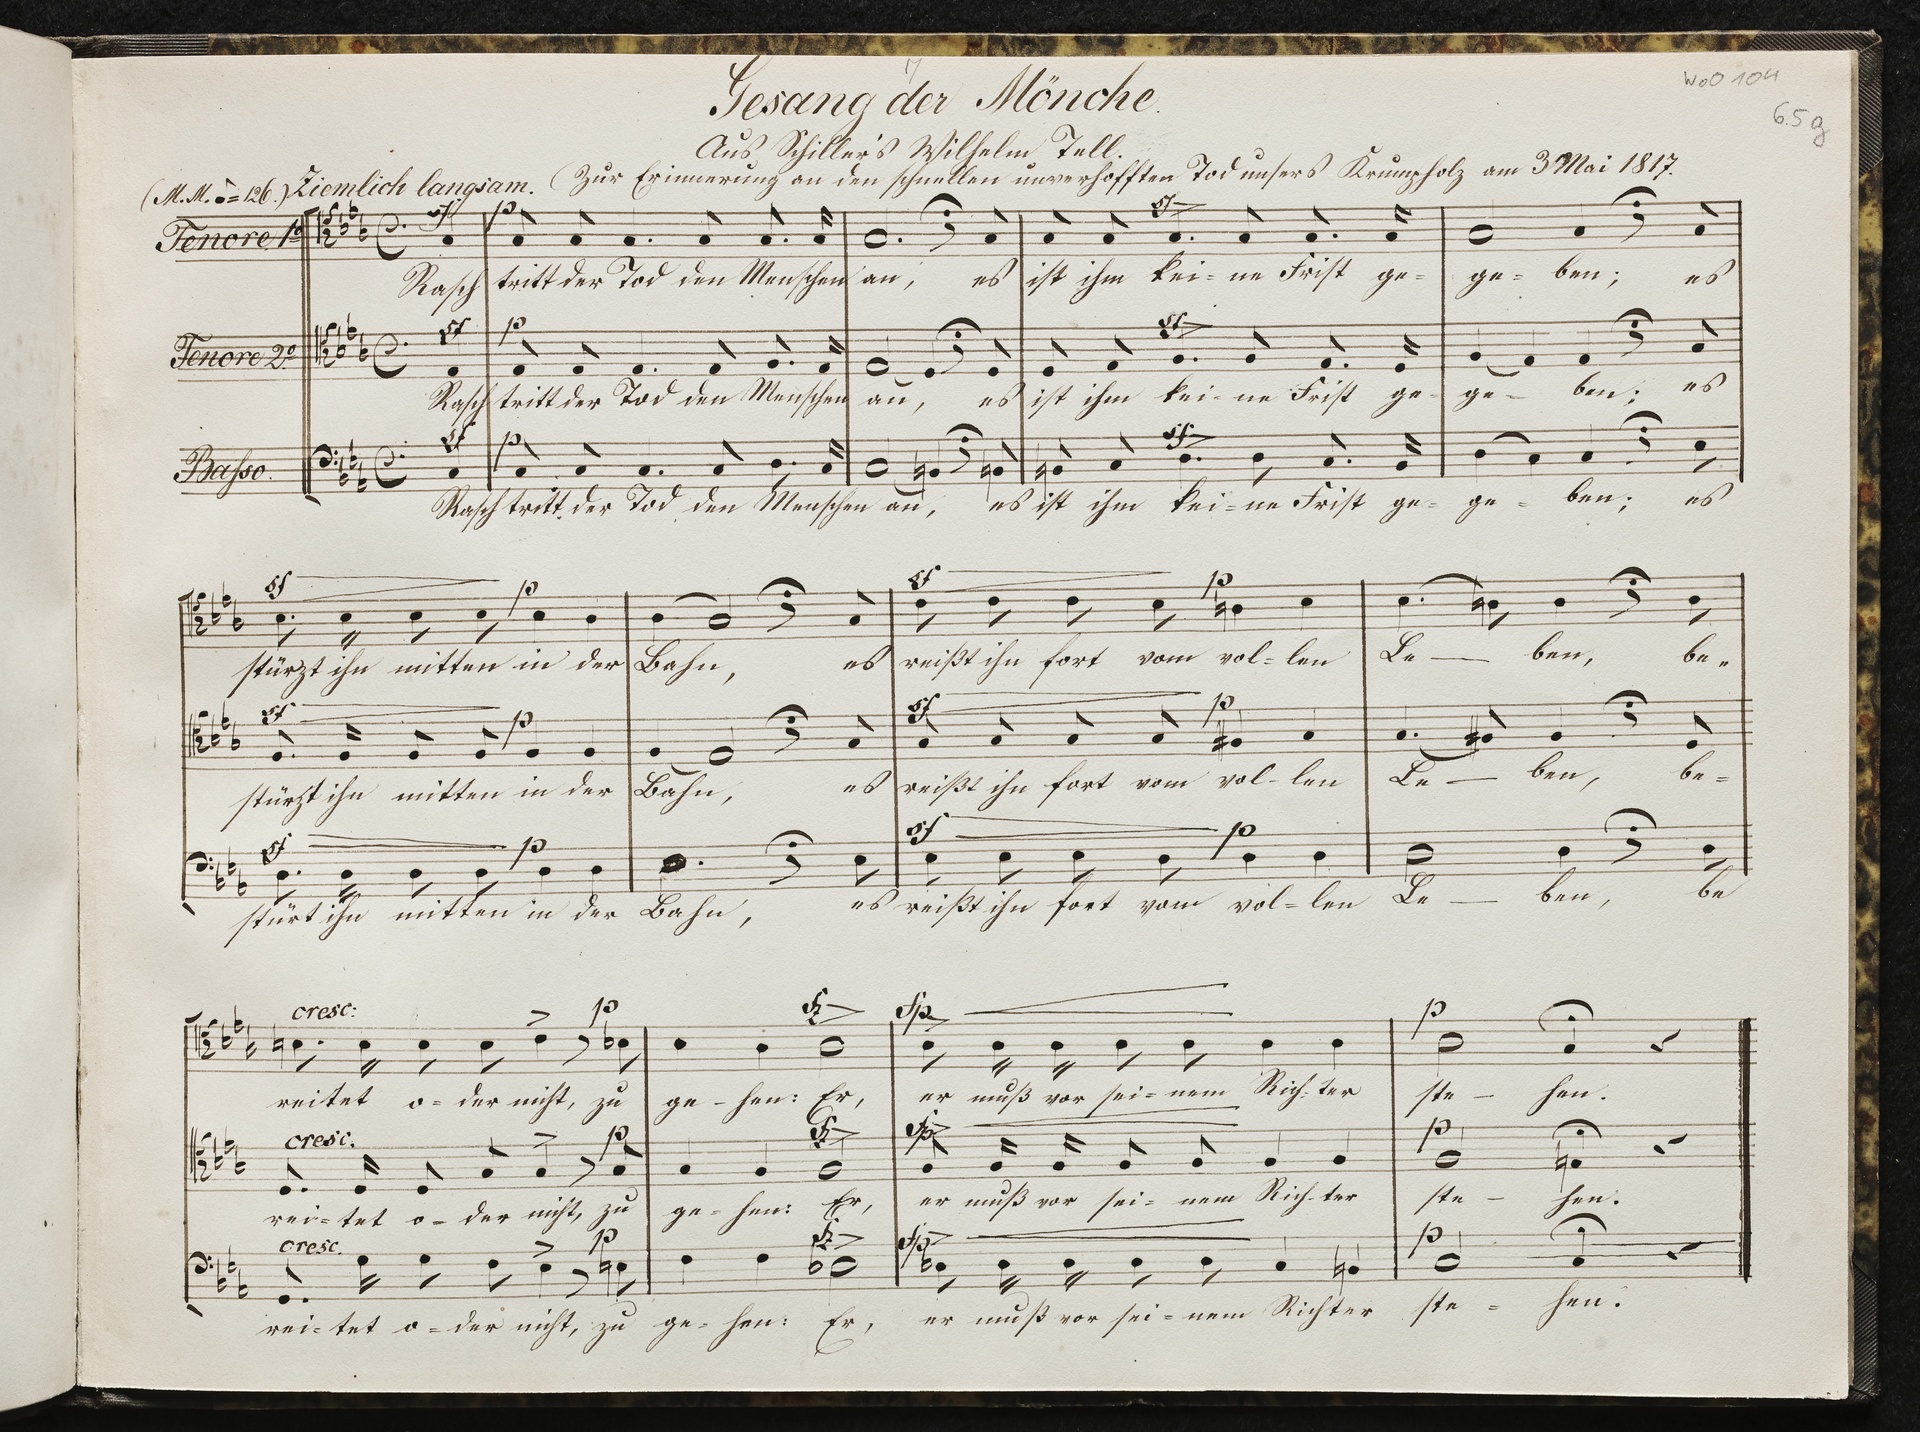 17
WoO 104
6.5 g
Gesang der Mönche.
Aus Schiller's Wilhelm Tell.
(Zur Erinnerung an den schnellen unverhofften Tod unsers Krumpholz am 3 Mai 1817.
(M.M. = 126.) Ziemlich langsam.
sf p sf
Tenore 1º
Rasch tritt der Tod den Menschen an, es ist ihm kei=ne Frist ge= ge= ben; es
sf p sf
Tenore 2º
Rasch tritt der Tod den Menschen an, es ist ihm kei=ne Frist ge- ge- ben; es
sf p sf
Basso.
Rasch tritt der Tod den Menschen an, es ist ihm kei=ne Frist ge= ge= ben; es
sf p sf p
stürzt ihn mitten in der Bahn, es reißt ihn fort vom vol=len Le— ben, be=
sf p sf p
stürzt ihn mitten in der Bahn, es reißt ihn fort vom vol-len Le— ben, be=
sf p sf p
stürt ihn mitten in der Bahn, es reißt ihn fort vom vol=len Le— ben, be
cresc: p fz fp p
reitet o=der nicht, zu ge-hen: Er, er muß vor sei=nem Rich=ter ste— hen.
cresc. p fz fp p
rei=tet o-der nicht, zu ge=hen: Er, er muß vor sei=nem Rich-ter ste— hen.
cresc. p fz fp p
rei=tet o=der nicht, zu ge=hen: Er, er muß vor sei=nem Richter ste= hen.